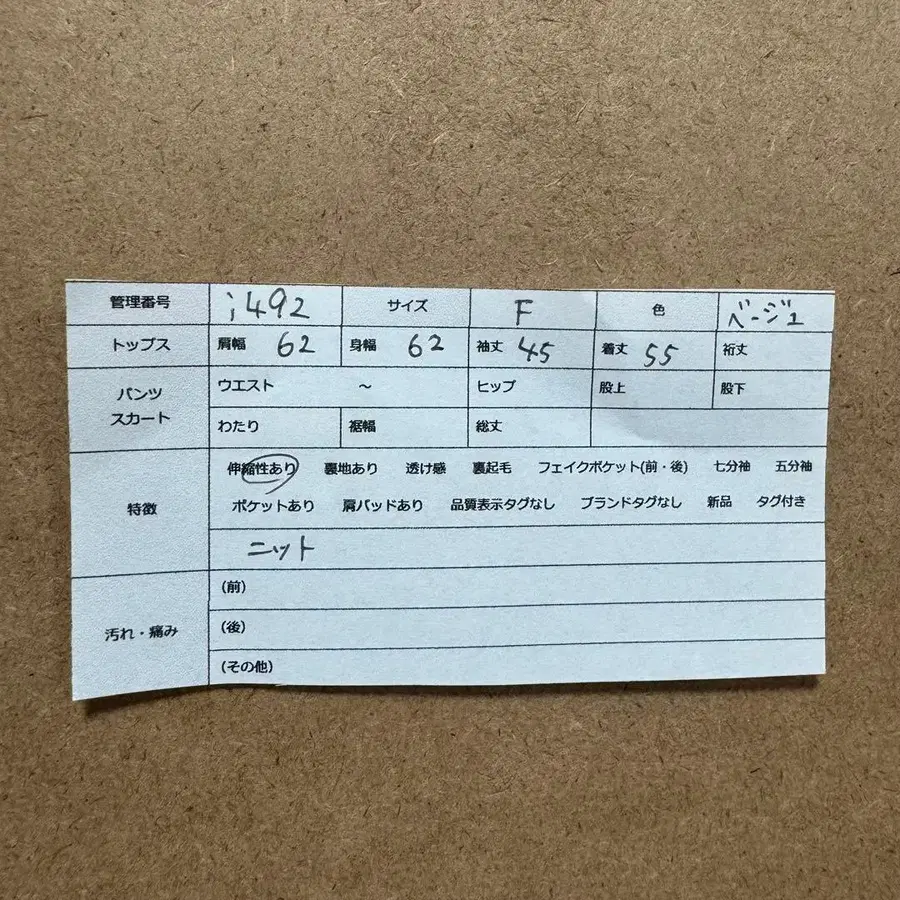 管理番号 i492 サイズ F 色 ベージュ
トップス 肩幅 62 身幅 62 袖丈 45 着丈 55 裄丈
パンツ スカート ウエスト ～ ヒップ 股上 股下
わたり 裾幅 総丈
特徴 伸縮性あり 裏地あり 透け感 裏起毛 フェイクポケット(前・後) 七分袖 五分袖
ポケットあり 肩パッドあり 品質表示タグなし ブランドタグなし 新品 タグ付き
ニット
汚れ・痛み (前)
(後)
(その他)